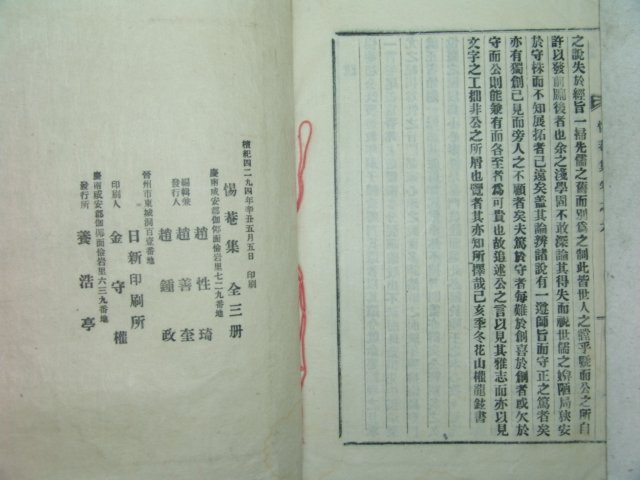 之說失於經旨一掃先儒之舊而別爲之制此皆世人之瞠乎駭而公之所自
許以發前賜後者也余之淺學固不敢深論其得失而視世儒之婾陋局狹安
於守株而不知展拓者已遠矣盖其論辨諸說有一遵師旨而守正之篤者矣
亦有獨創己見而旁人之不顧者矣夫篤於守者每難於創喜於創者或欠於
守而公則能兼有而各至者爲可貴也故追述公之言以見其雅志而亦以見
文字之工拙非公之所屑也覽者其亦知所擇哉己亥季冬花山權龍鉉書
檀紀四二九四年辛丑五月五日 印刷
惕菴集 全三册
慶南咸安郡伽倻面偷岩里七二九番地
趙性琦
編輯兼發行人 趙善奎
趙鍾政
晉州市東城洞百壹番地
日新印刷所
印刷人 金守權
慶南咸安郡伽倻面偷岩里六三九番地
發行所 養浩亭